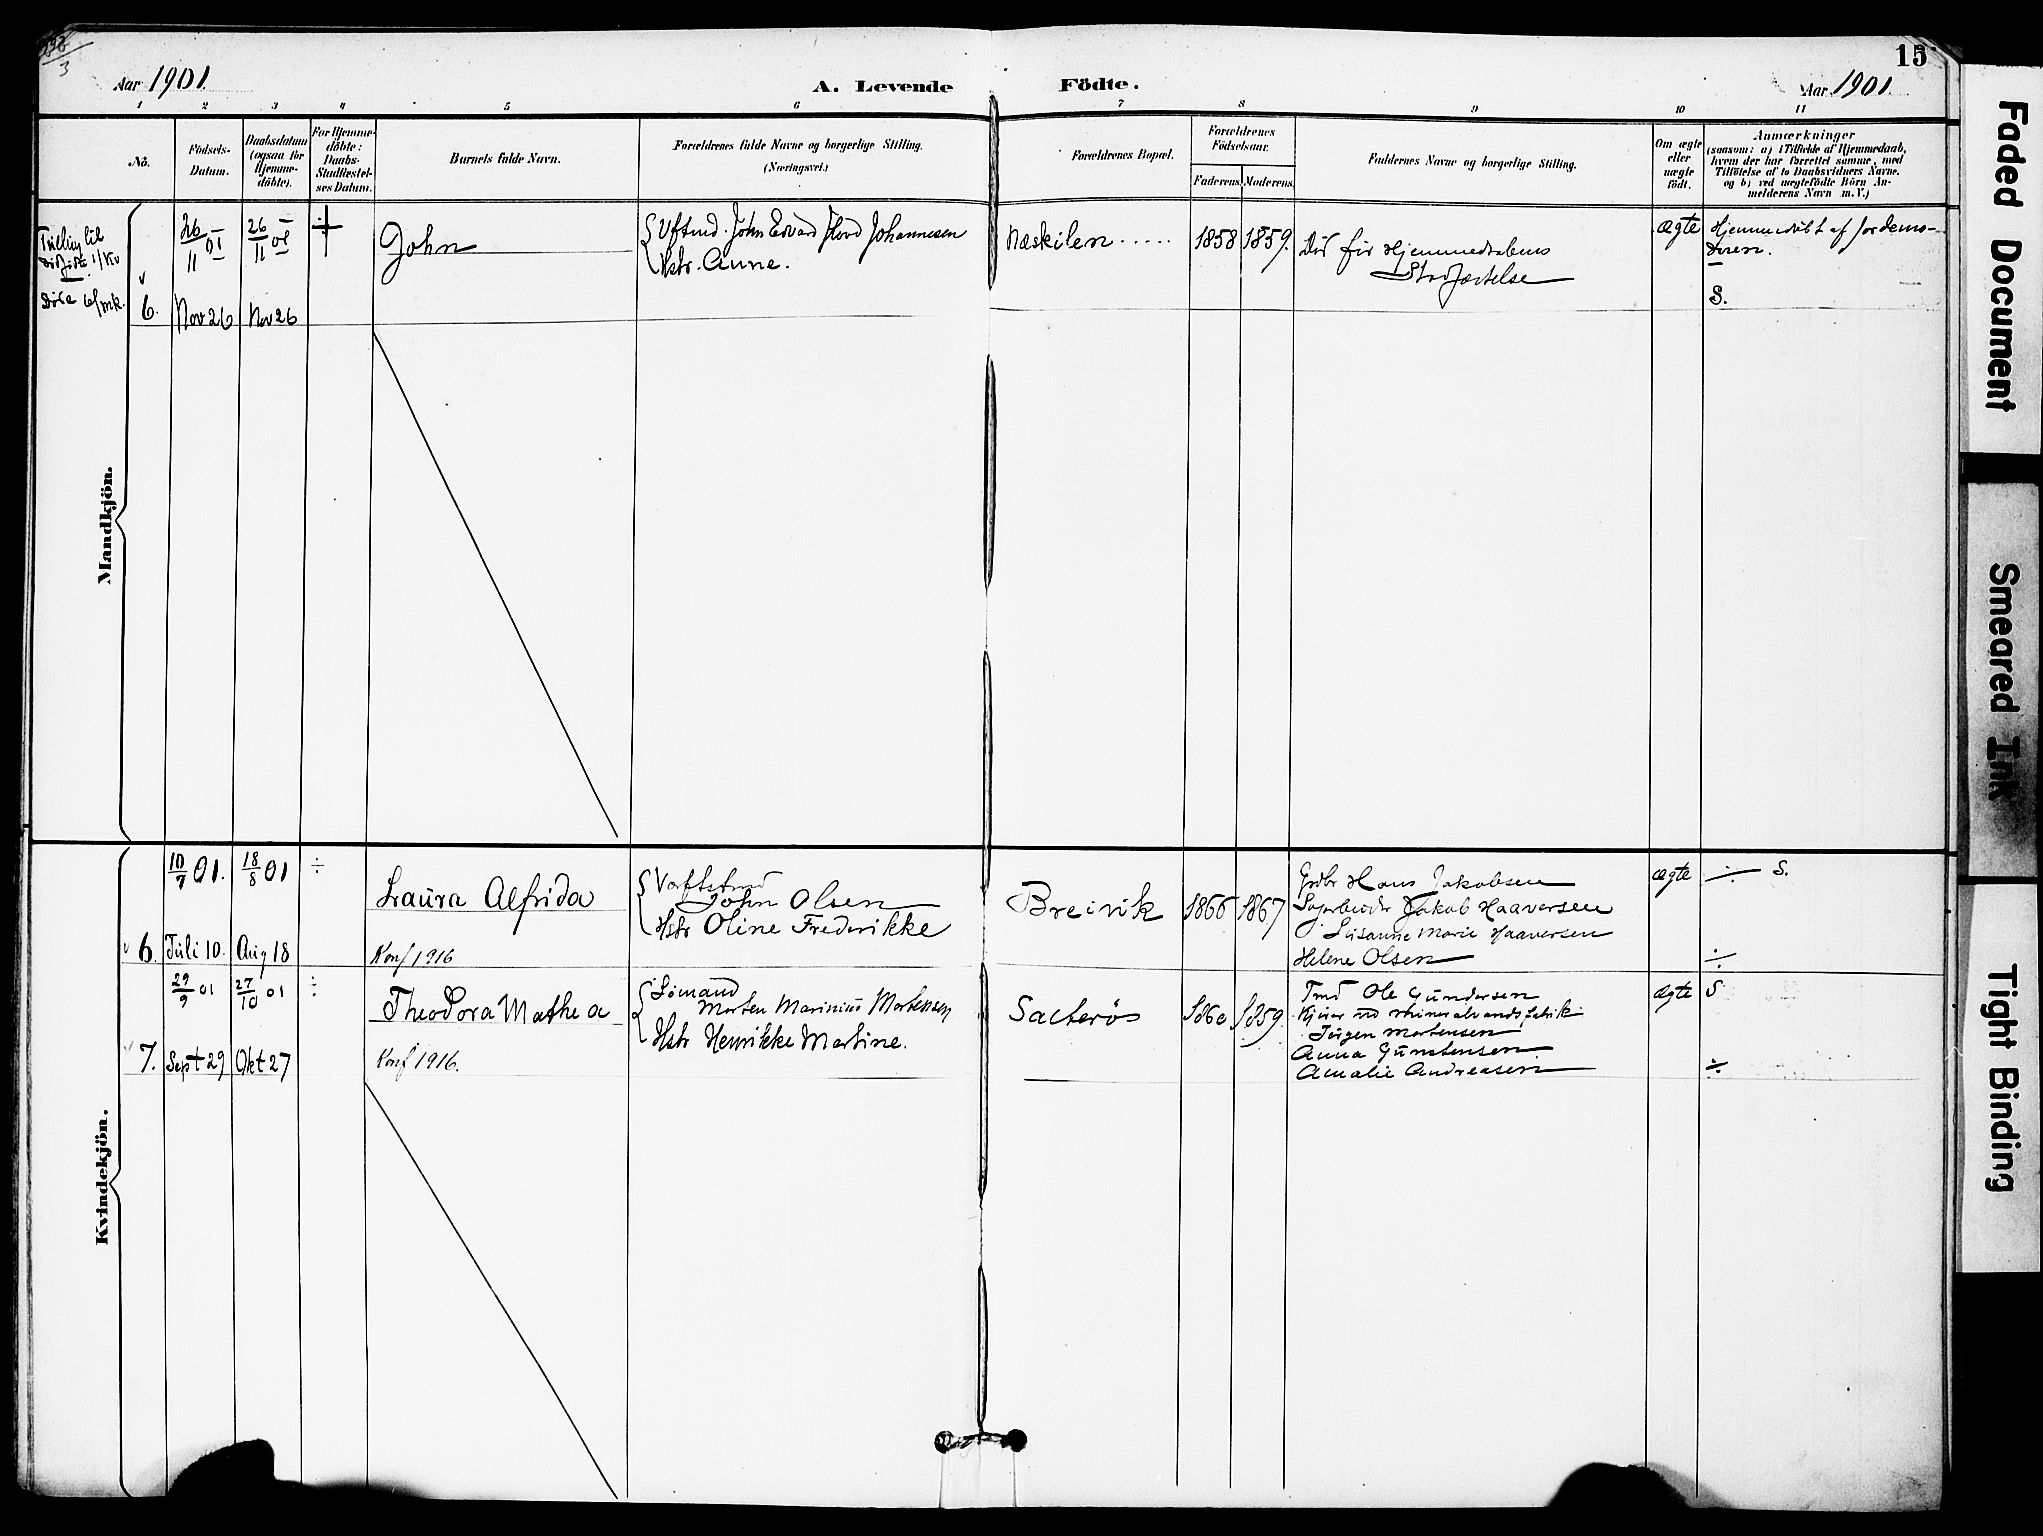 15
Aar 1901.
A. Levende Födte.
Aar 1901
1 2 3 4 5 6 7 8 9 10 11
No.
Födsels-
Datum.
Daabsdatum
(ogsaa for
Hjemme-
döbte).
For Hjemme-
döbte:
Daabs-
Stadfæstel-
ses Datum.
Barnets fulde Navn.
Forældrenes fulde Navne og borgerlige Stilling.
(Næringsvei.)
Forældrenes Bopæl.
Forældrenes
Födselsaar.
Faderens.
Moderens.
Faddernes Navne og borgerlige Stilling.
Om ægte
eller
uægte
födt.
Anmærkninger
(saasom: a) i Tilfælde af Hjemmedaab,
hvem der har forrettet samme, med
Tilföielse af to Daabsvidners Navne.
og b) ved uægtefödte Börn An-
melderens Navn m.V.)
Mandkjön.
6.
26/11 01
Nov 26
26/11 01
Nov 26
John
John Edvard Johannesen
Hstr. Anne.
Næskilen . . . . .
1858
1859.
Död för Hjemmedaabens
Stadfæstelse
ægte
Hjemmedöbt af Jordemo-
deren.
S.
Kvindekjön.
6.
10/7 01.
Juli 10.
18/8 01
Aug 18
÷
Laura Alfrida
Konf 1916
John Olsen
Hstr Oline Frederikke
Breivik
1866
1867
Grdbr Hans Jakobsen
Jakob Haaversen
Susanne Marie Haaversen
Helene Olsen
ægte
÷ S.
÷
7.
29/9 01
Sept 29
27/10 01
Okt 27
÷
Theodora Mathea
Konf 1916.
Sömand
Morten Marinius Mortensen
Hstr Henrikke Martine.
Salterös
1860
1859.
Ole Gundersen
Kjører ved Mineralvandsfabrik
Jörgen Mortensen
Anna Gunstensen
Amalie Andreasen
ægte
S
÷
Faded Document
Smeared Ink
Tight Binding